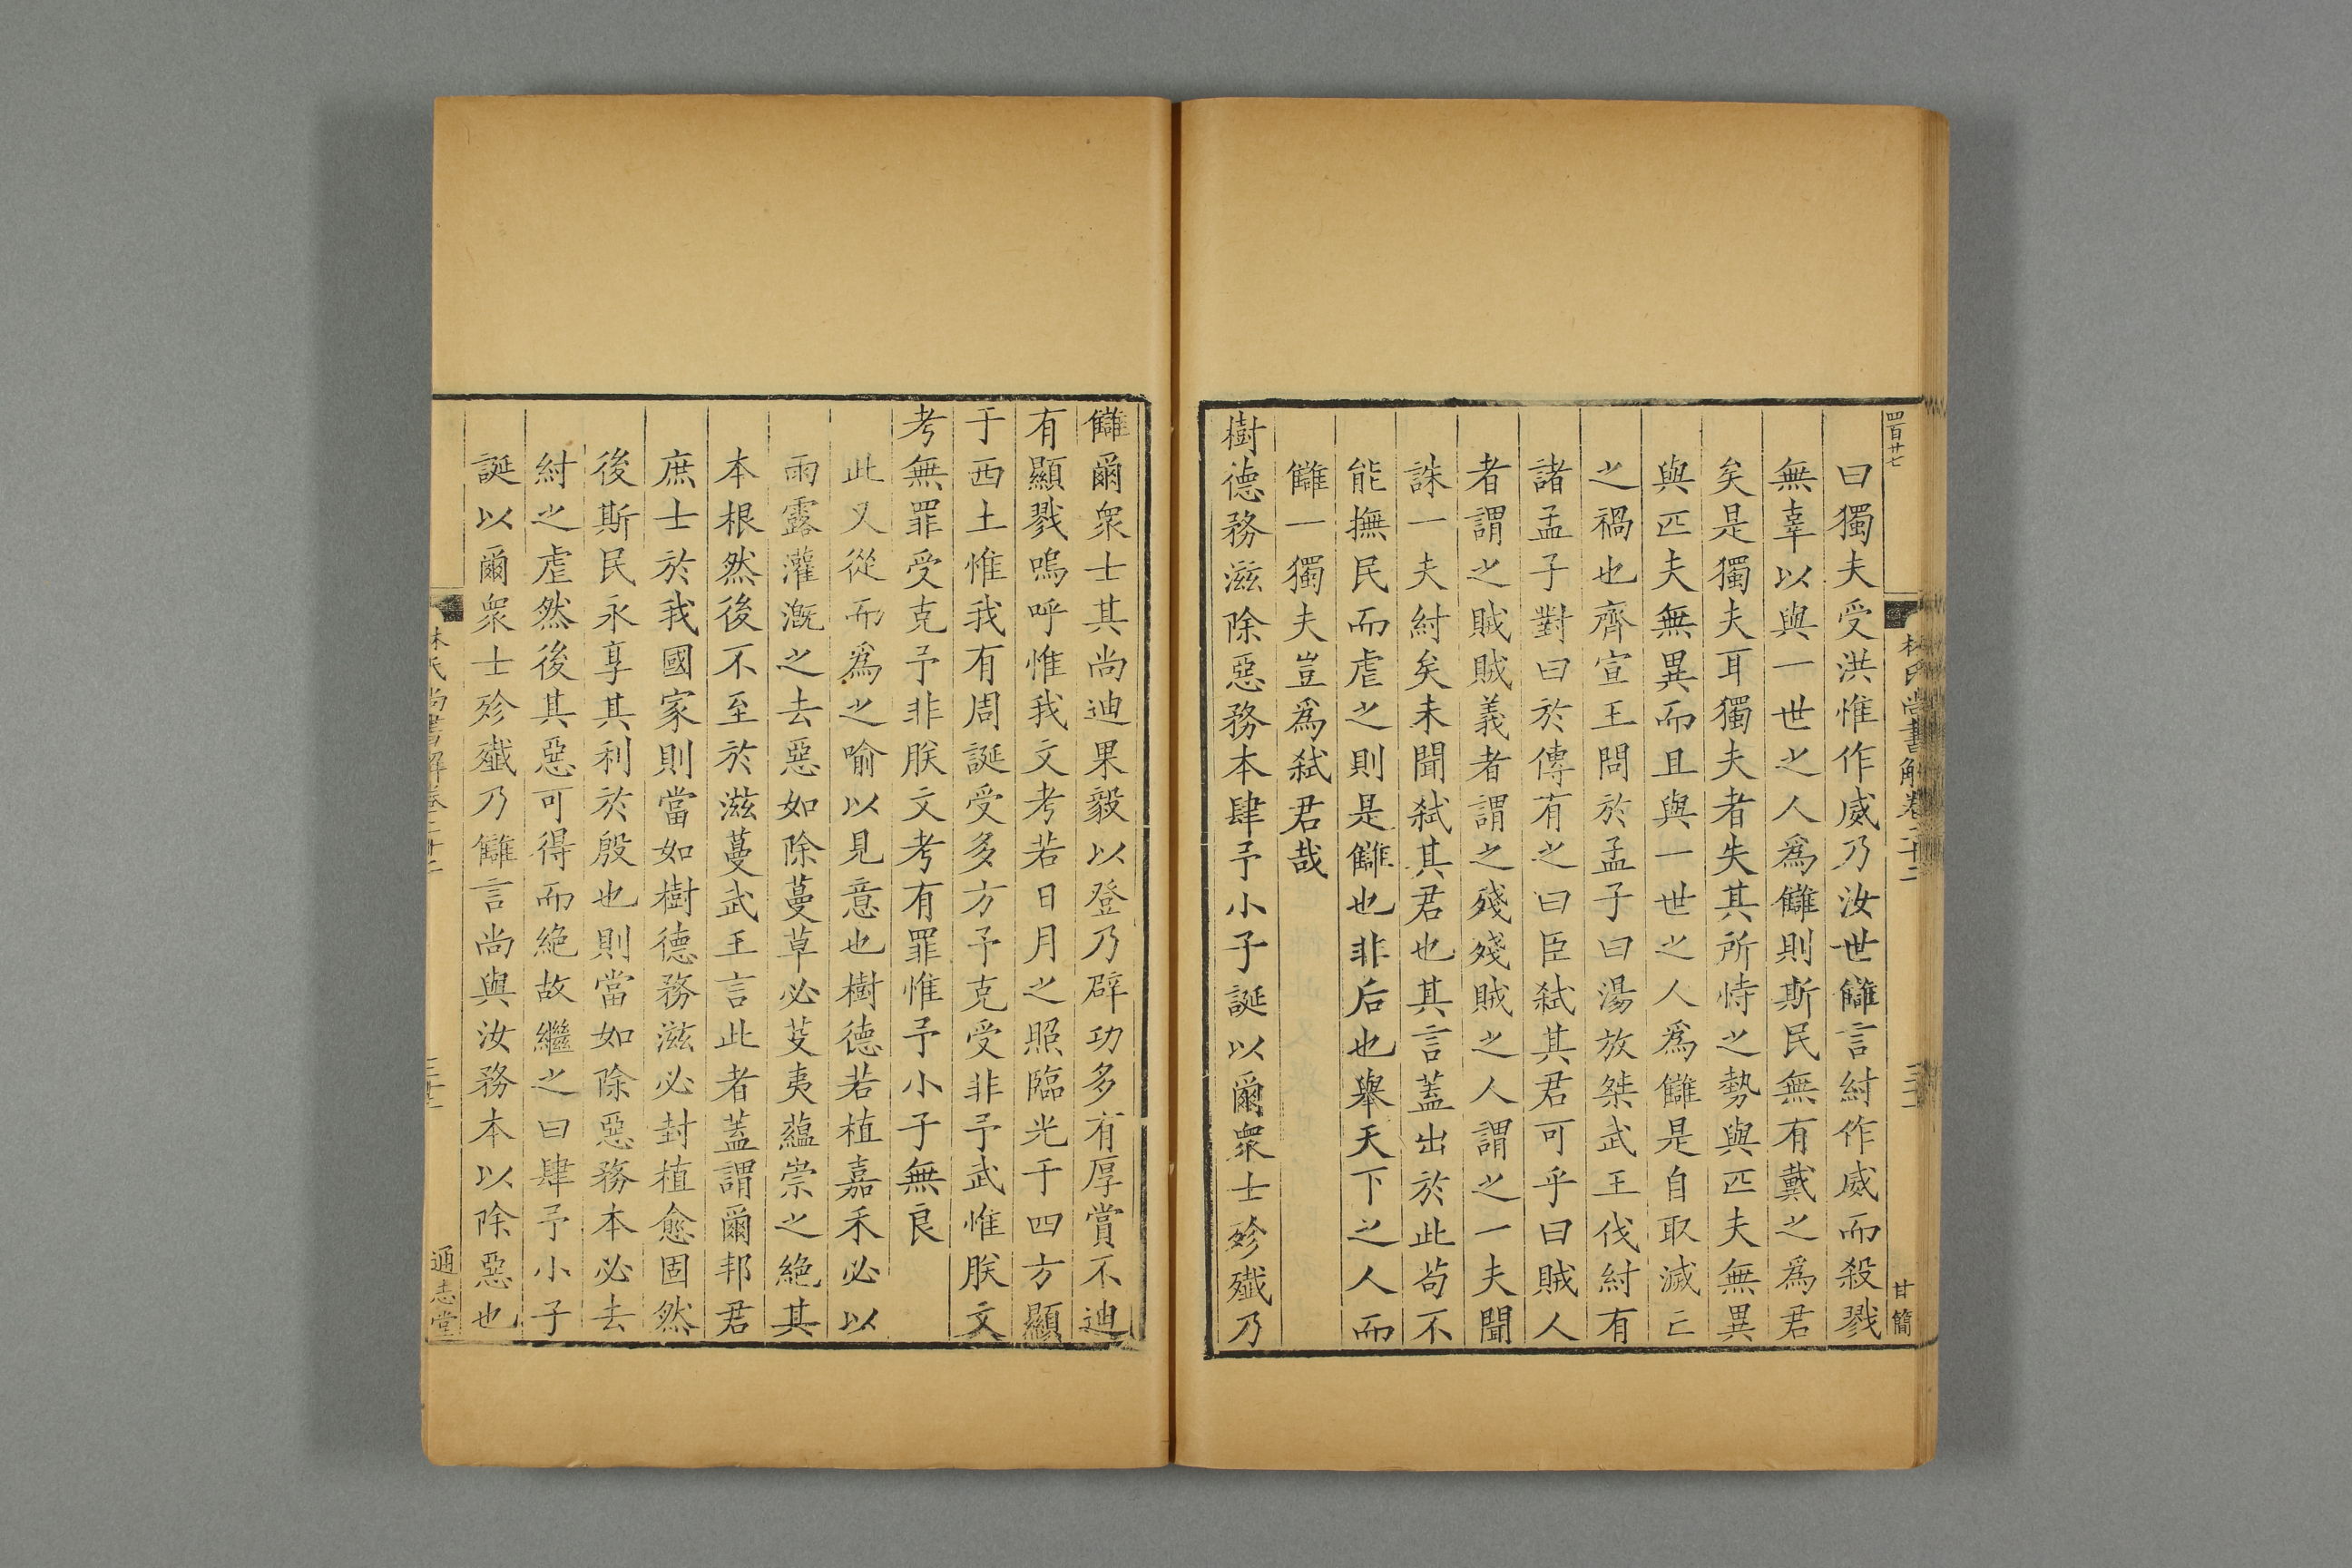 四百廿七
林氏尚書解卷二十二
甘簡
曰獨夫受洪惟作威乃汝世讎言紂作威而殺戮
無辜以與一世之人爲讎則斯民無有戴之爲君
矣是獨夫耳獨夫者失其所恃之勢與匹夫無異
與匹夫無異而且與一世之人爲讎是自取滅亡
之禍也齊宣王問於孟子曰湯放桀武王伐紂有
諸孟子對曰於傳有之曰臣弑其君可乎曰賊人
者謂之賊賊義者謂之殘殘賊之人謂之一夫聞
誅一夫紂矣未聞弑其君也其言蓋出於此苟不
能撫民而虐之則是讎也非后也舉天下之人而
讎一獨夫豈爲弑君哉
樹德務滋除惡務本肆予小子誕以爾眾士殄殲乃
讎爾眾士其尚迪果毅以登乃辟功多有厚賞不迪
有顯戮嗚呼惟我文考若日月之照臨光于四方顯
于西土惟我有周誕受多方予克受非予武惟朕文
考無罪受克予非朕文考有罪惟予小子無良
此又從而爲之喻以見意也樹德若植嘉禾必以
雨露灌漑之去惡如除蔓草必芟夷蘊崇之絕其
本根然後不至於滋蔓武王言此者蓋謂爾邦君
庶士於我國家則當如樹德務滋必封植愈固然
後斯民永享其利於殷也則當如除惡務本必去
紂之虐然後其惡可得而絕故繼之曰肆予小子
誕以爾眾士殄殲乃讎言尚與汝務本以除惡也
林氏尚書解卷二十二
通志堂